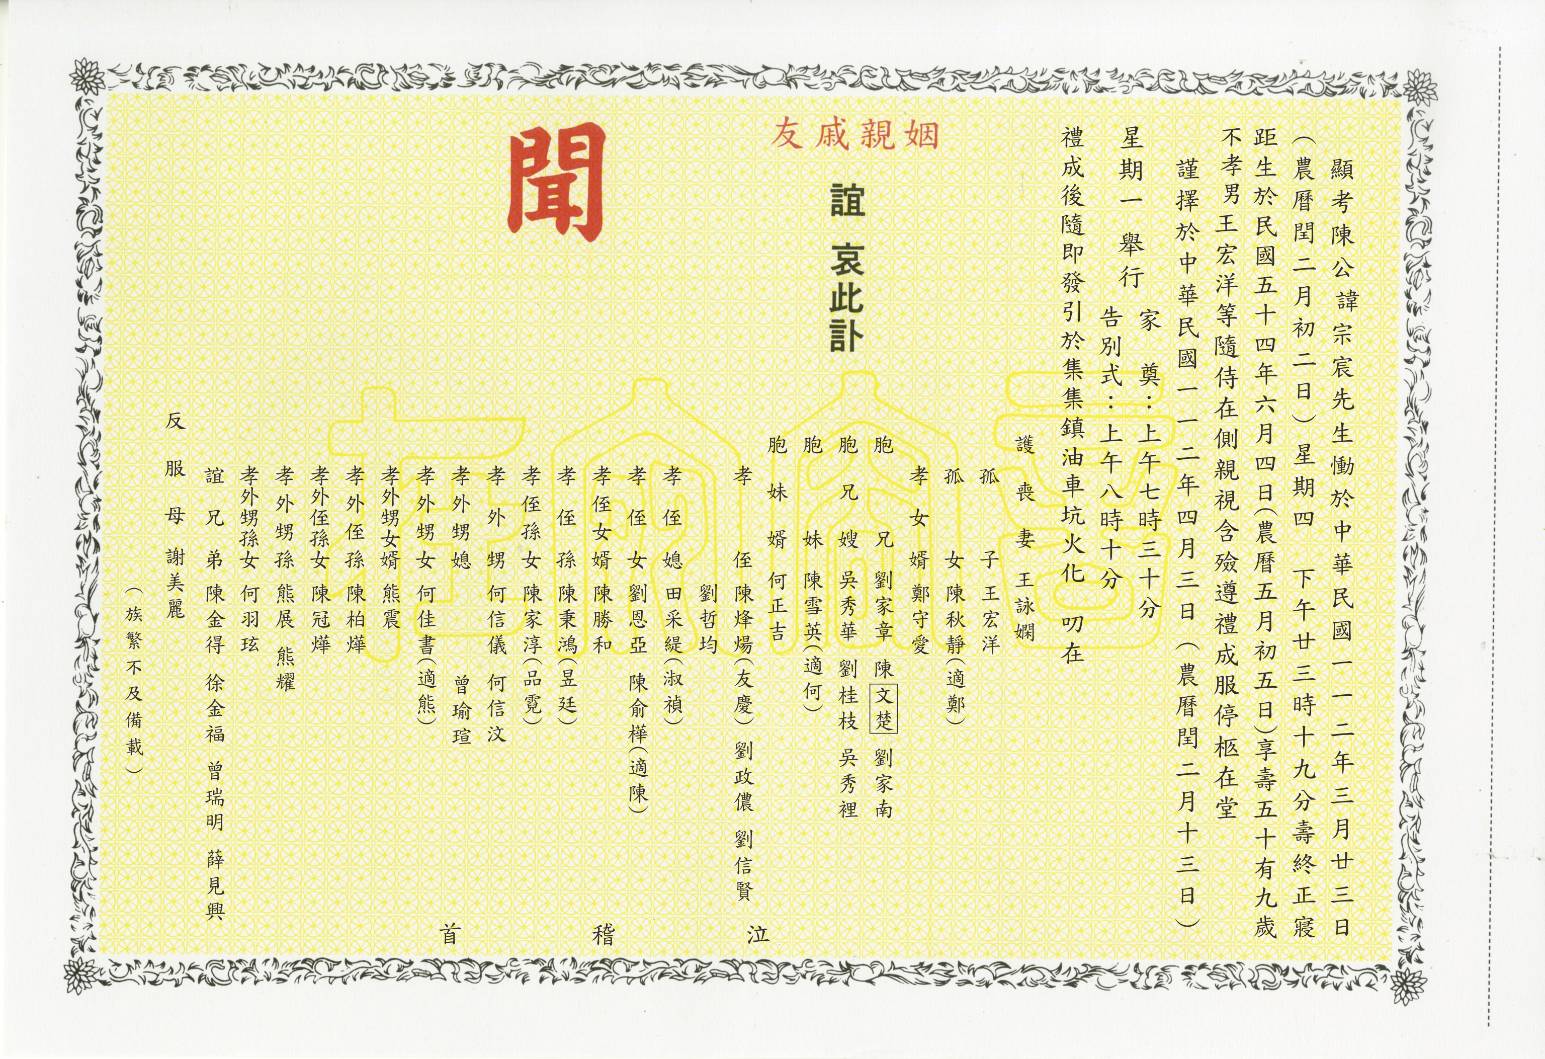 顯考陳公諱宗宸先生慟於中華民國一一二年三月廿三日
(農曆閏二月初二日)星期四 下午廿三時十九分壽終正寢
距生於民國五十四年六月四日(農曆五月初五日)享壽五十有九歲
不孝男王宏洋等隨侍在側親視含殮遵禮成服停柩在堂
謹擇於中華民國一一二年四月三日(農曆閏二月十三日)
星期一舉行
家奠:上午七時三十分
告別式:上午八時十分
禮成後隨即發引於集集鎮油車坑火化 叨在
姻親戚友
誼 哀此訃
聞
護喪妻 王詠嫻
孤子 王宏洋
孤女 陳秋靜(適鄭)
孝女婿 鄭守愛
胞兄 劉家章 陳文楚 劉家南
胞兄嫂 吳秀華 劉桂枝 吳秀裡
胞妹 陳雪英(適何)
胞妹婿 何正吉
孝侄 陳烽煬(友慶) 劉政儂 劉信賢
劉哲均
孝侄媳 田采緹(淑禎)
孝侄女 劉恩亞 陳俞樺(適陳)
孝侄女婿 陳勝和
孝侄孫 陳秉鴻(昱廷)
孝侄孫女 陳家淳(品霓)
孝外甥 何信儀 何信汶
孝外甥媳 曾瑜瑄
孝外甥女 何佳書(適熊)
孝外甥女婿 熊震
孝外侄孫 陳柏燁
孝外侄孫女 陳冠燁
孝外甥孫 熊展 熊耀
孝外甥孫女 何羽玹
誼兄弟 陳金得 徐金福 曾瑞明 薛見興
反服母 謝美麗
(族繁不及備載)
泣稽首